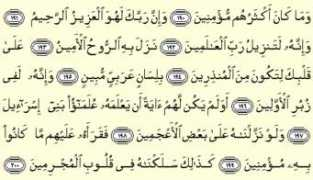 وَمَا كَانَ أَكْثَرُهُم مُّؤْمِنِينَ ١٩٠ وَإِنَّ رَبَّكَ لَهُوَ ٱلْعَزِيزُ ٱلرَّحِيمُ ١٩١
وَإِنَّهُۥ لَتَنزِيلُ رَبِّ ٱلْعَـٰلَمِينَ ١٩٢ نَزَلَ بِهِ ٱلرُّوحُ ٱلْأَمِينُ ١٩٣ عَلَىٰ
قَلْبِكَ لِتَكُونَ مِنَ ٱلْمُنذِرِينَ ١٩٤ بِلِسَانٍ عَرَبِىٍّ مُّبِينٍ ١٩٥ وَإِنَّهُۥ لَفِى
زُبُرِ ٱلْأَوَّلِينَ ١٩٦ أَوَلَمْ يَكُن لَّهُمْ ءَايَةً أَن يَعْلَمَهُۥ عُلَمَـٰٓؤُا۟ بَنِىٓ إِسْرَٰٓءِيلَ
١٩٧ وَلَوْ نَزَّلْنَـٰهُ عَلَىٰ بَعْضِ ٱلْأَعْجَمِينَ ١٩٨ فَقَرَأَهُۥ عَلَيْهِم مَّا كَانُوا۟
بِهِۦ مُؤْمِنِينَ ١٩٩ كَذَٰلِكَ سَلَكْنَـٰهُ فِى قُلُوبِ ٱلْمُجْرِمِينَ ٢٠٠